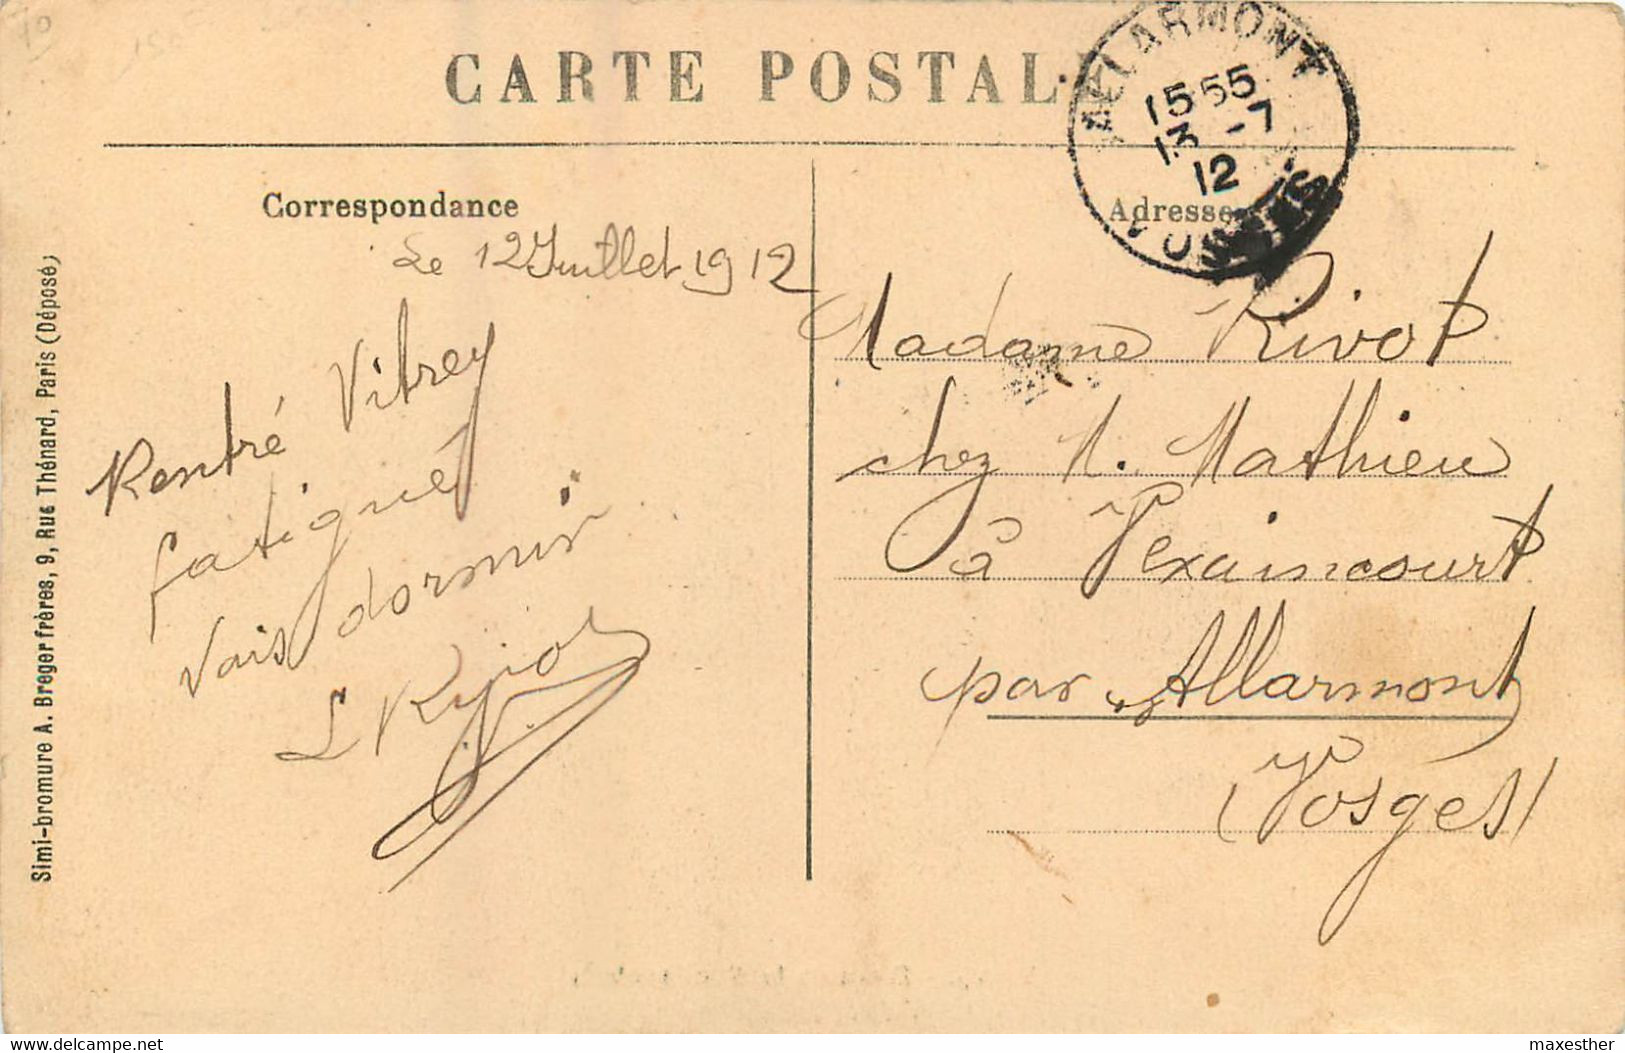 CARTE POSTALE
ALLARMONT
15 55
13 -7
12
VOSGES
Correspondance
Adresse
Le 12 Juillet 1912
Rentré Vitrey
fatigué
Vais dormir
L Rivot
Madame Rivot
chez M. Mathieu
à Vexaincourt
par Allarmont
(Vosges)
Simi-bromure A. Breger frères, 9, Rue Thénard, Paris (Déposé)
delcampe.net
maxesther